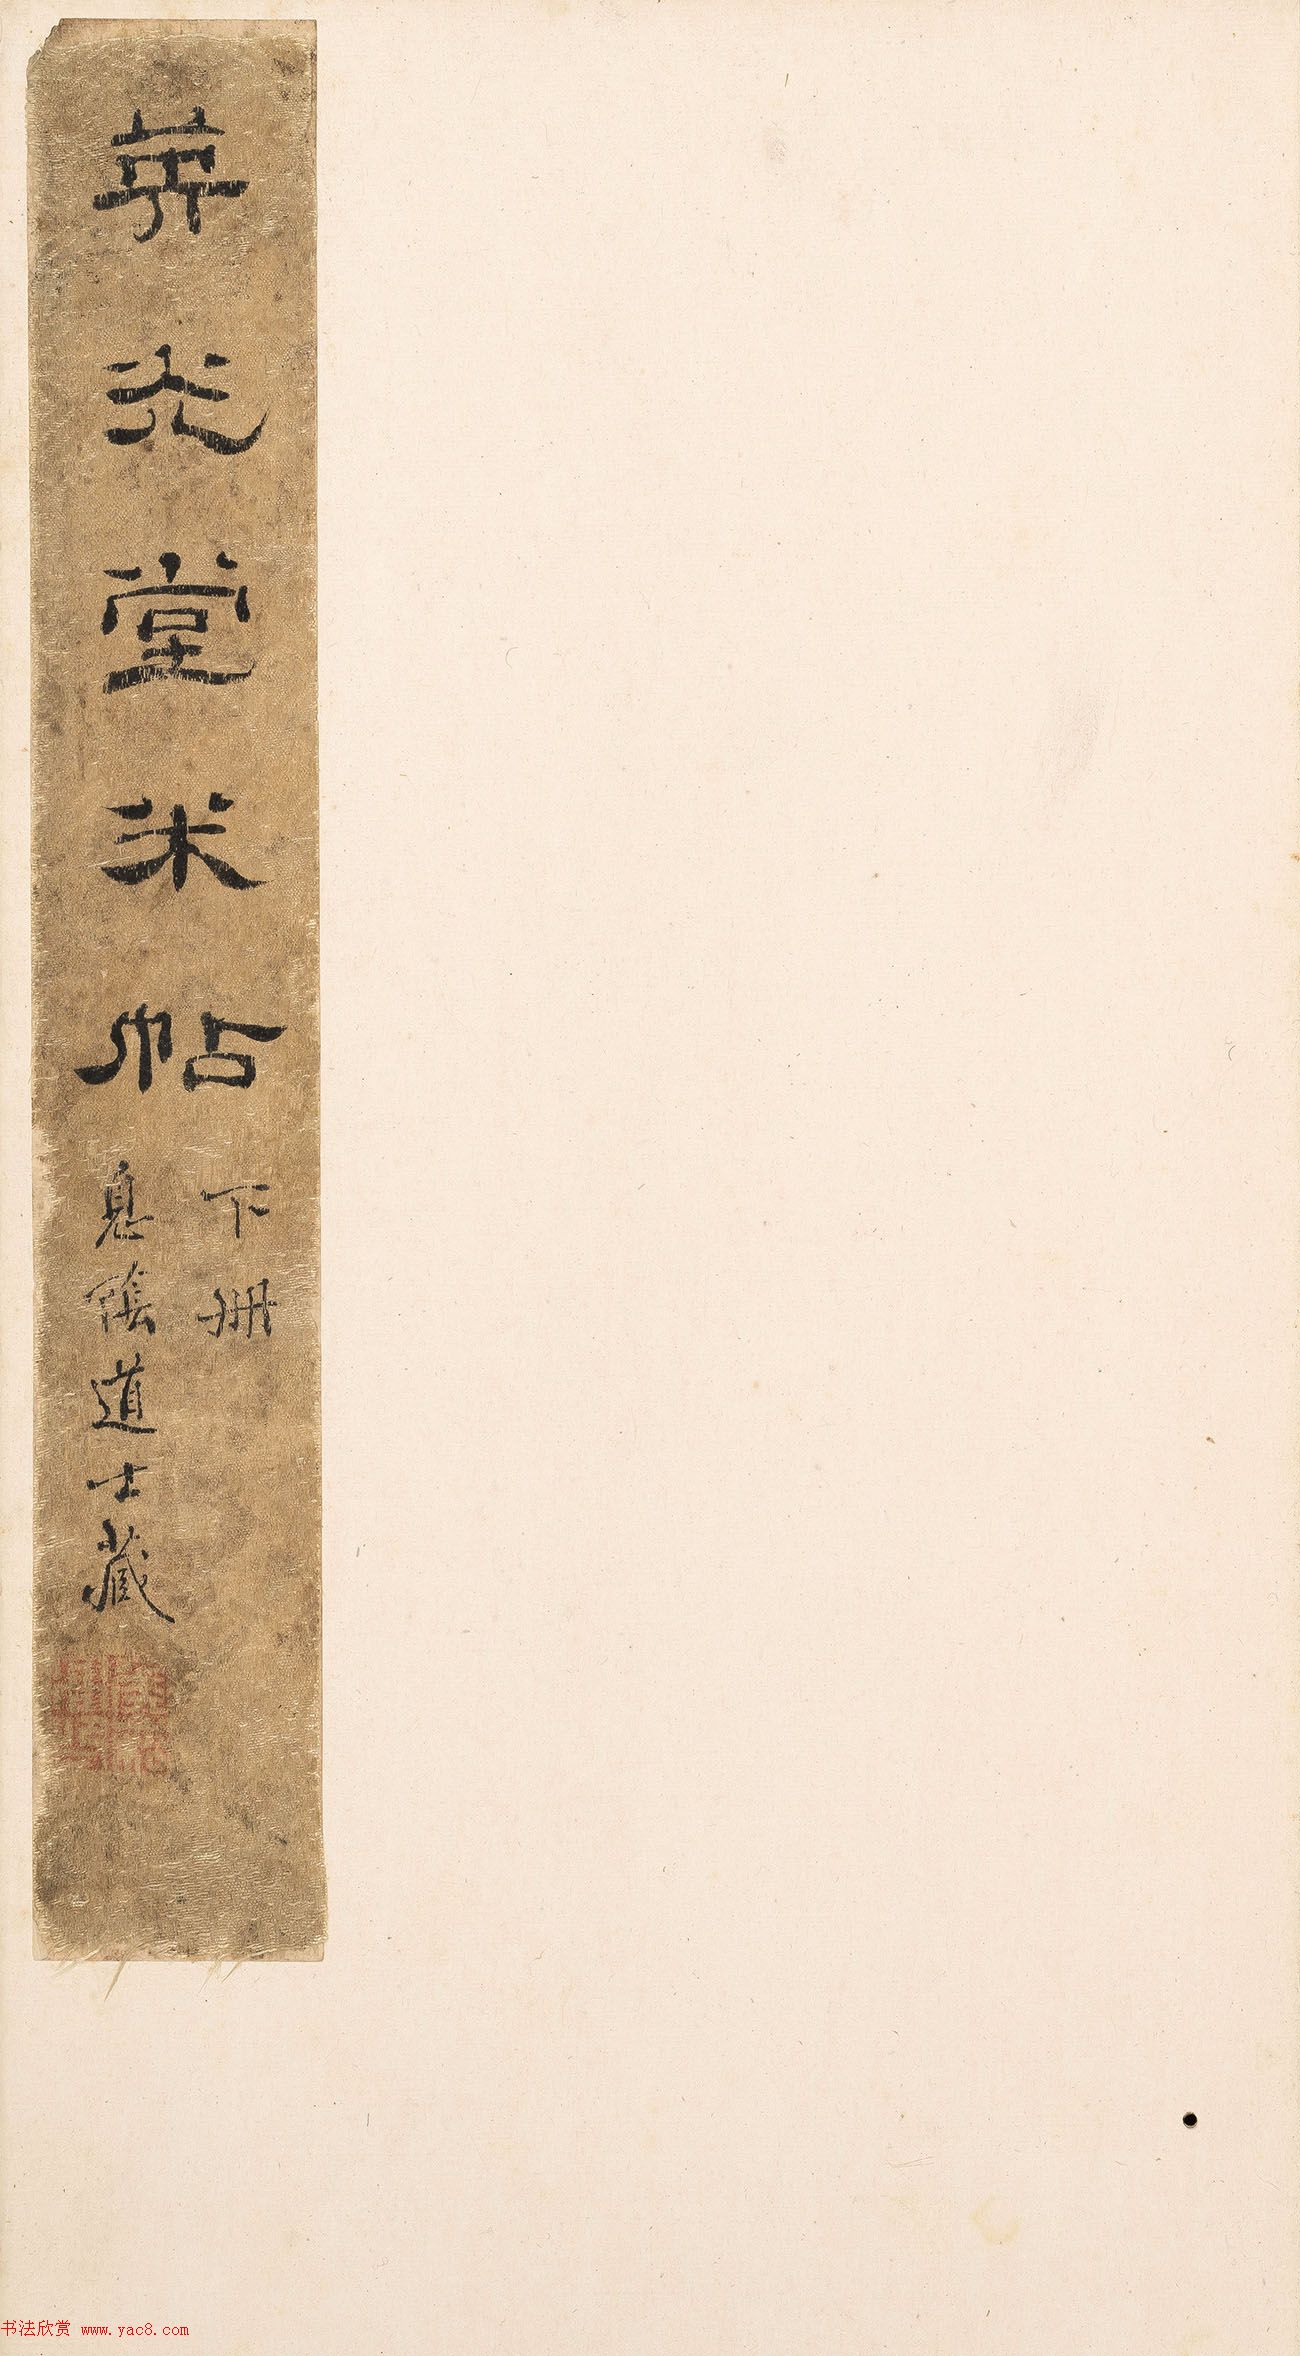 英光堂米帖
下册
息陰道士藏
书法欣赏 www.yac8.com